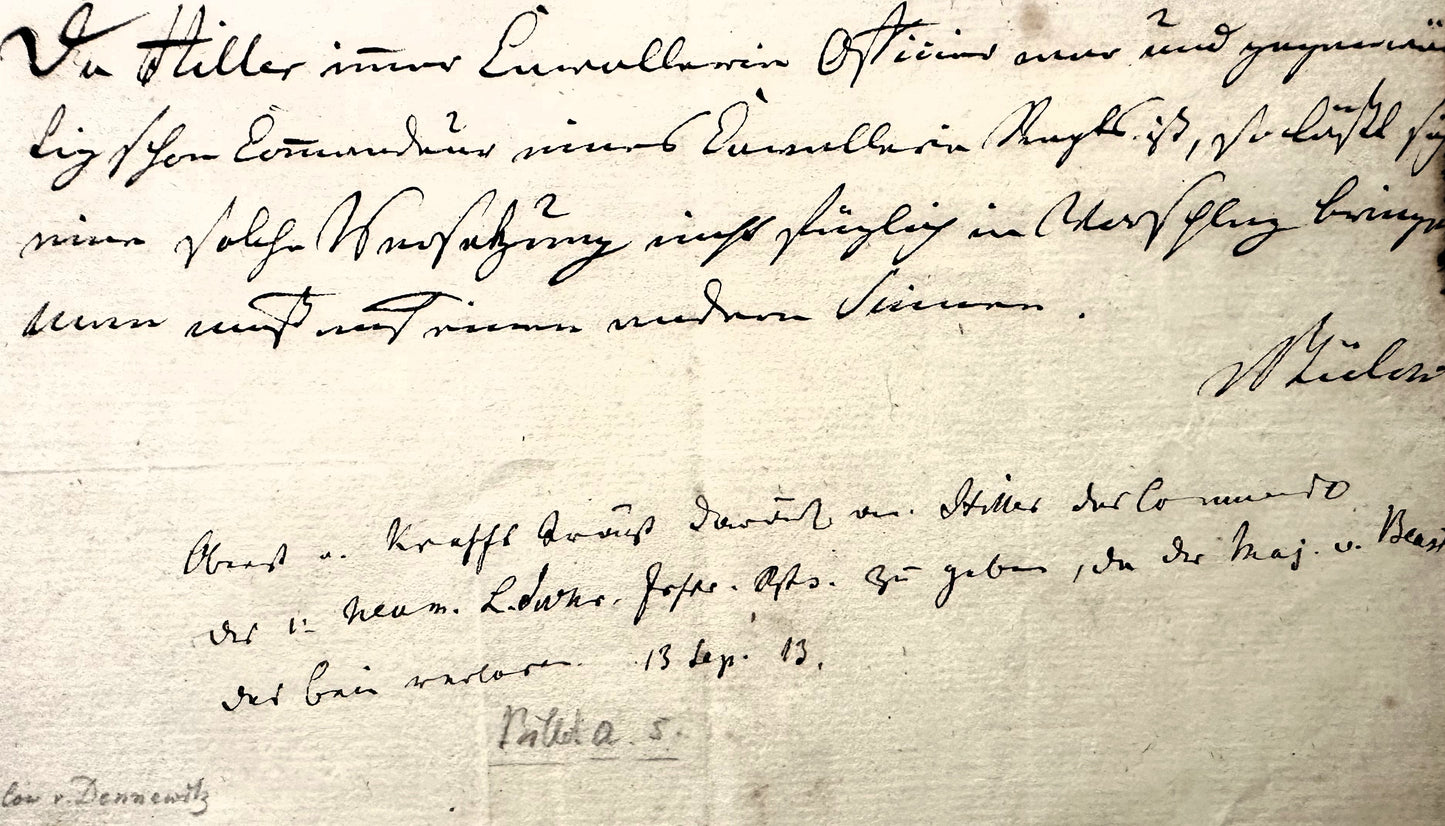 Da Hiller immer Cavallerie Officier war und gegenwär
tig schon Commandeur eines Cavallerie Regts. ist, so läßt sich
eine solche Versetzung nicht füglich in Vorschlag bringen
man muß auf einen andern sinnen.
Bülow
Oberst v. Krafft trägt darauf an. Hiller das Commando
des 1. Neum. L.dwhr. Inftr. Rgts. zu geben, da der Maj. v.
das bein verloren 13 Sep. 13.
Billet a. s.
low v. Dennewitz